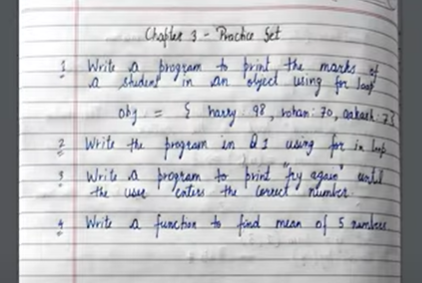 Chapter 3 - Practice Set
1 Write a program to print the marks of
a student in an object using for loop
obj = { harry: 98, rohan: 70, aakash: 7
2 Write the program in Q1 using for in loop
3 Write a program to print "try again" until
the user enters the correct number.
4 Write a function to find mean of 5 numbers.